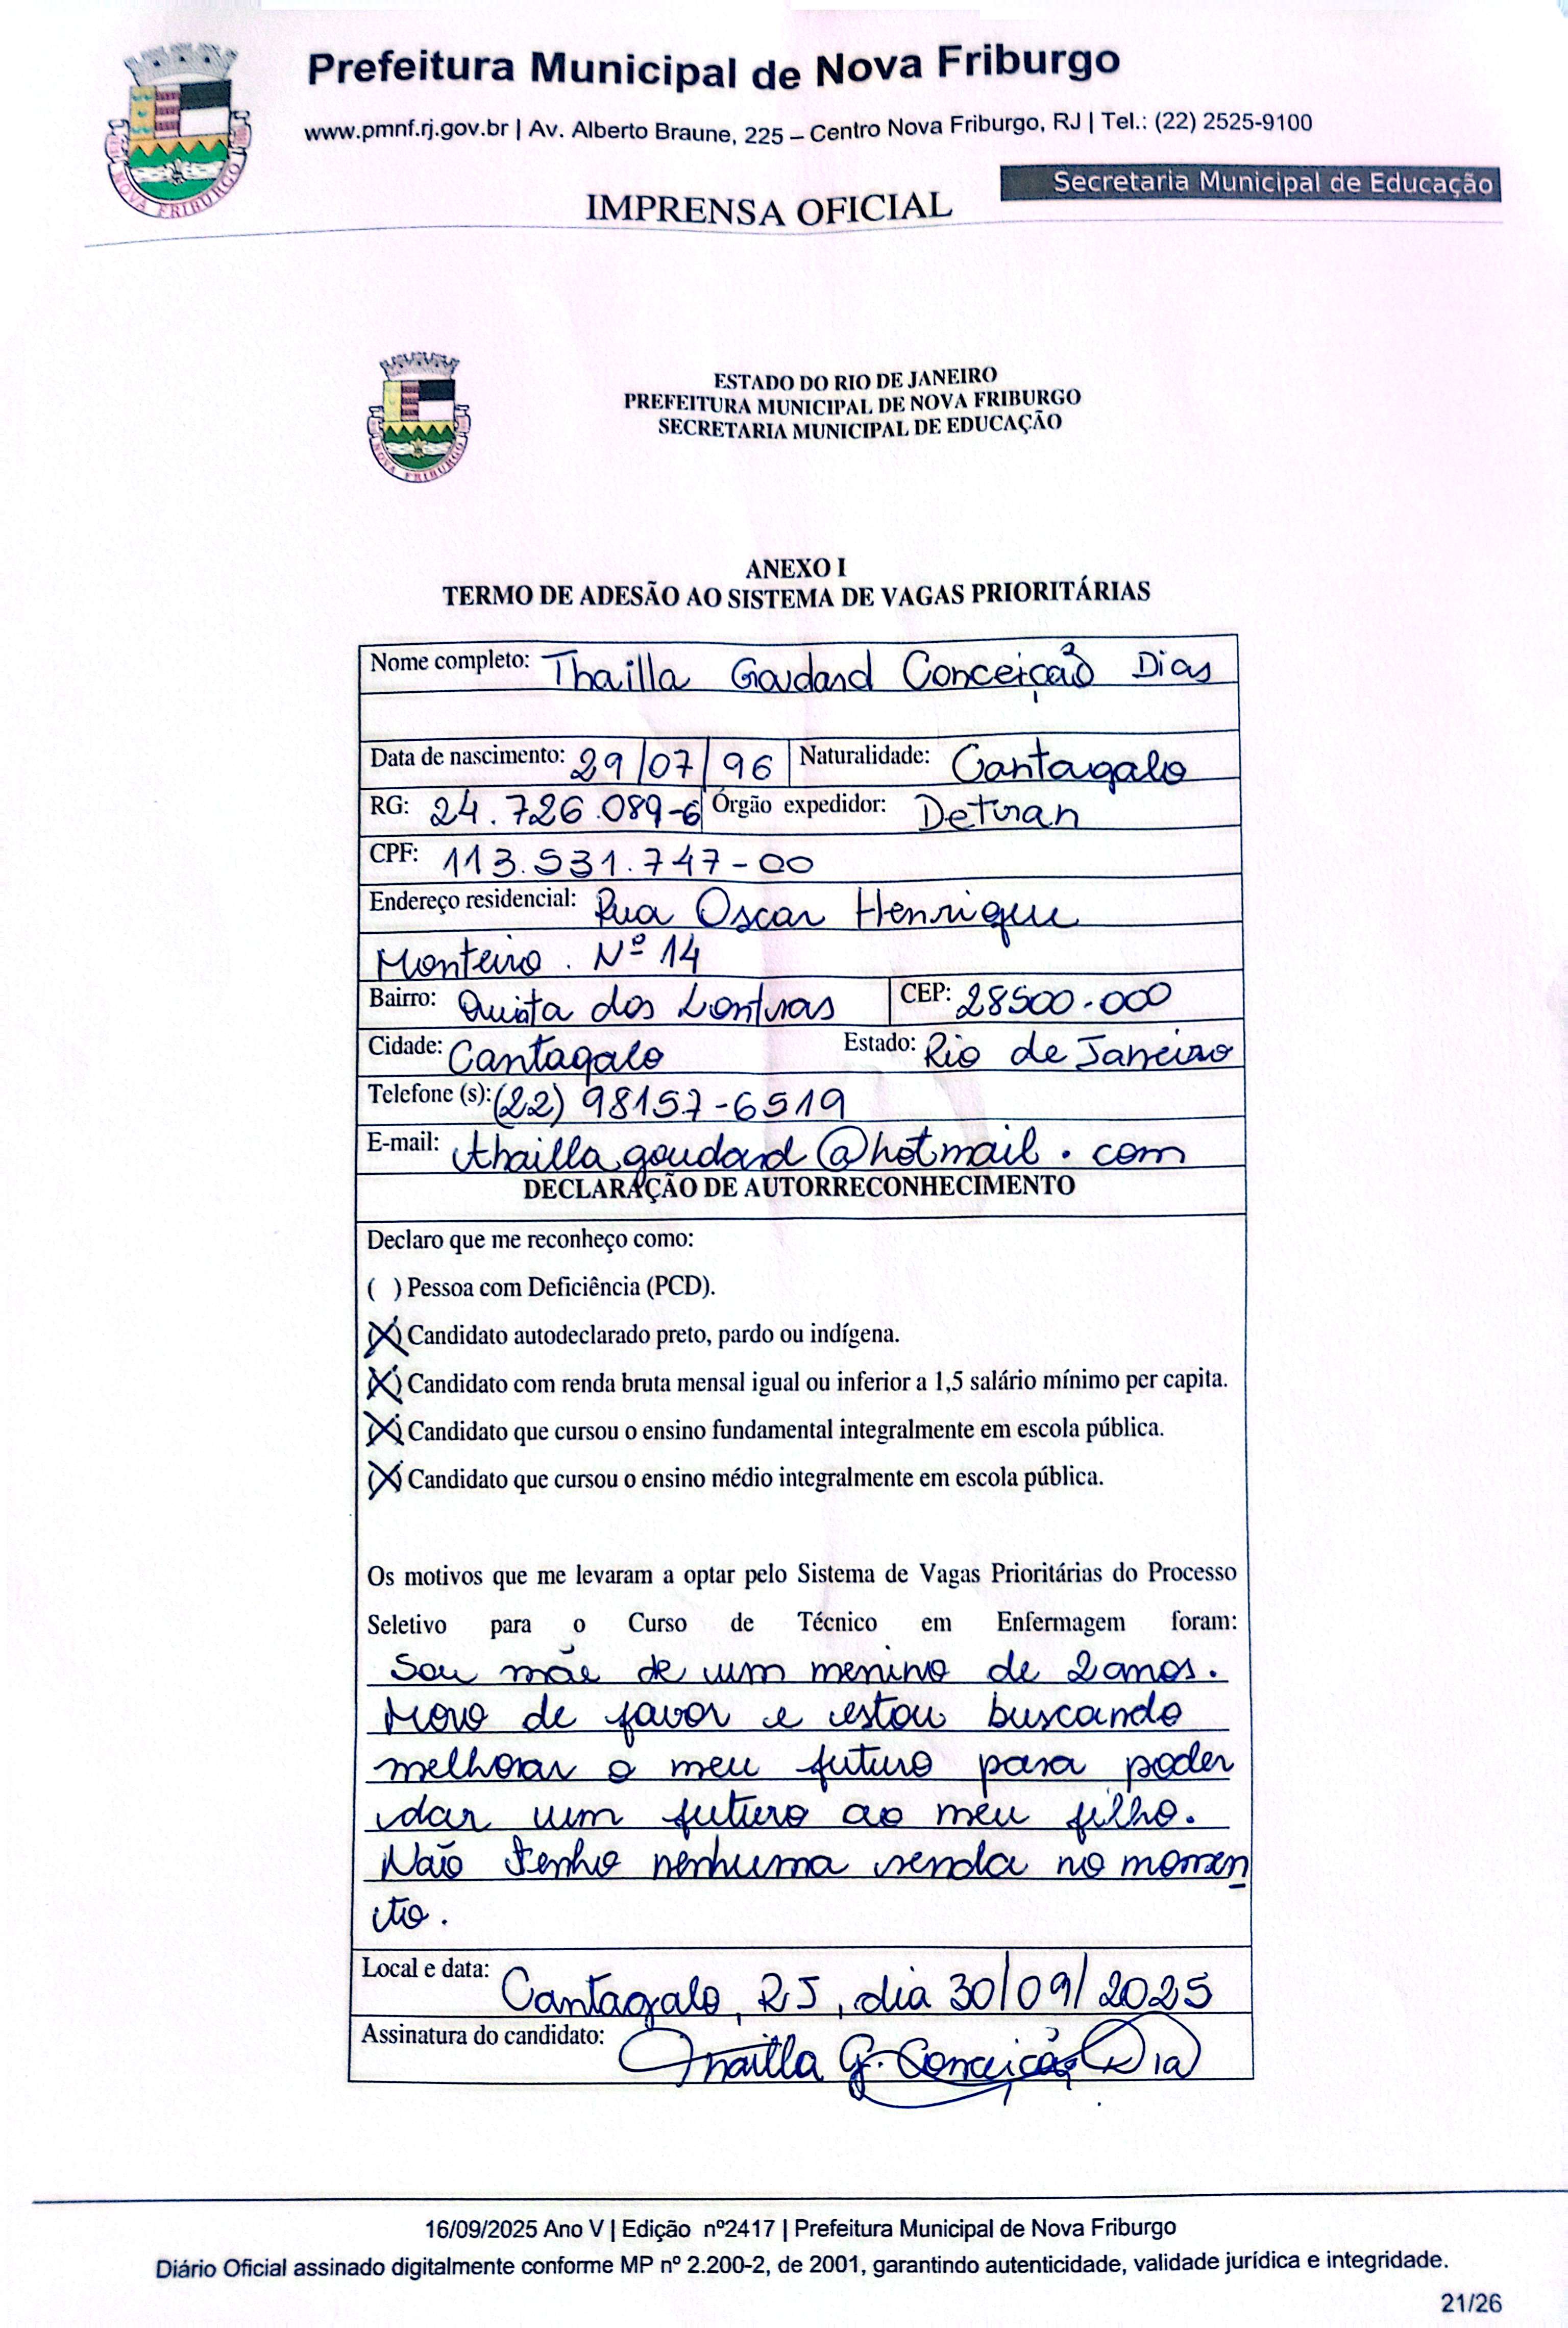 Prefeitura Municipal de Nova Friburgo
www.pmnf.rj.gov.br | Av. Alberto Braune, 225 – Centro Nova Friburgo, RJ | Tel.: (22) 2525-9100
Secretaria Municipal de Educação
IMPRENSA OFICIAL
NOVA FRIBURGO
ESTADO DO RIO DE JANEIRO
PREFEITURA MUNICIPAL DE NOVA FRIBURGO
SECRETARIA MUNICIPAL DE EDUCAÇÃO
NOVA FRIBURGO
ANEXO I
TERMO DE ADESÃO AO SISTEMA DE VAGAS PRIORITÁRIAS
Nome completo: Thailla Goudard Conceição Dias
Data de nascimento: 29/07/96 Naturalidade: Cantagalo
RG: 24.726.089-6 Órgão expedidor: Detran
CPF: 113.531.747-00
Endereço residencial: Rua Oscar Henrique
Monteiro. Nº 14
Bairro: Quinta dos Lontras CEP: 28500-000
Cidade: Cantagalo Estado: Rio de Janeiro
Telefone (s): (22) 98157-6519
E-mail: thailla.goudard@hotmail.com
DECLARAÇÃO DE AUTORRECONHECIMENTO
Declaro que me reconheço como:
( ) Pessoa com Deficiência (PCD).
(X) Candidato autodeclarado preto, pardo ou indígena.
(X) Candidato com renda bruta mensal igual ou inferior a 1,5 salário mínimo per capita.
(X) Candidato que cursou o ensino fundamental integralmente em escola pública.
(X) Candidato que cursou o ensino médio integralmente em escola pública.
Os motivos que me levaram a optar pelo Sistema de Vagas Prioritárias do Processo
Seletivo para o Curso de Técnico em Enfermagem foram:
Sou mãe de um menino de 2 anos.
Moro de favor e estou buscando
melhorar o meu futuro para poder
dar um futuro ao meu filho.
Não tenho nenhuma renda no momen
to.
Local e data: Cantagalo, RJ, dia 30/09/2025
Assinatura do candidato: Thailla G. Conceição Dias
16/09/2025 Ano V | Edição nº2417 | Prefeitura Municipal de Nova Friburgo
Diário Oficial assinado digitalmente conforme MP nº 2.200-2, de 2001, garantindo autenticidade, validade jurídica e integridade.
21/26